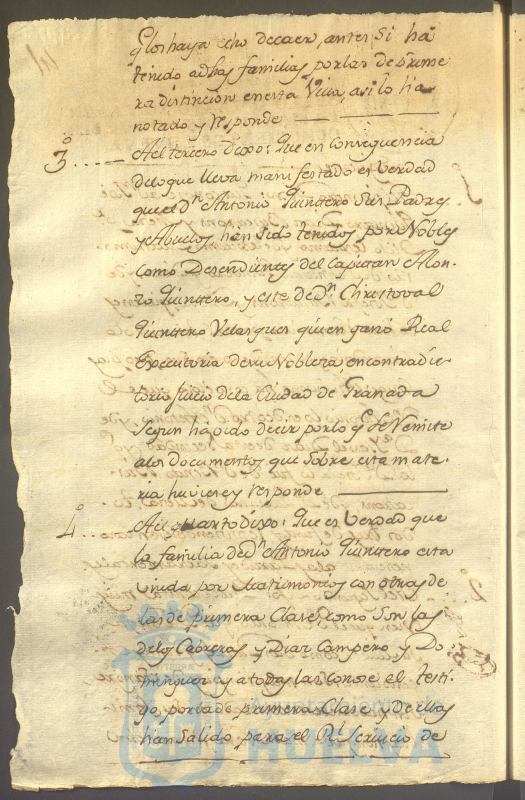 q.e los haya echo decaer, antes si há
tenido adhas familias por las de prime
ra distincion en esta Villa, asi lo ha
notado y responde
3.º Al tercero dixo: Que en conseguencia
delo que lleva manifestado es verdad
que el d.n Antonio Quintero sus Padres
y Abuelos hán sido tenidos por Nobles
como Desendientes del Capitan Alon-
zo Quintero, y este de d.n Christoval
Quintero Velasques quien ganó Real
Executoria de su Nobleza, en contradic-
torio juicio dela Ciudad de Granada
segun há oido decir por lo q.e se remite
alos documentos que sobre esta mate-
ria huviere y responde
4.º Al quarto dixo: Que es verdad que
la familia de d.n Antonio Quintero esta
Unida por Matrimonios con otras de
las de primera Clase, como son las
delos Cabreras y Diaz Campero y Do-
minguez y atodas las conose el testi-
go, por la de primera Clase y de ellas
hán Salido para el R.l Servicio de
HUELVA